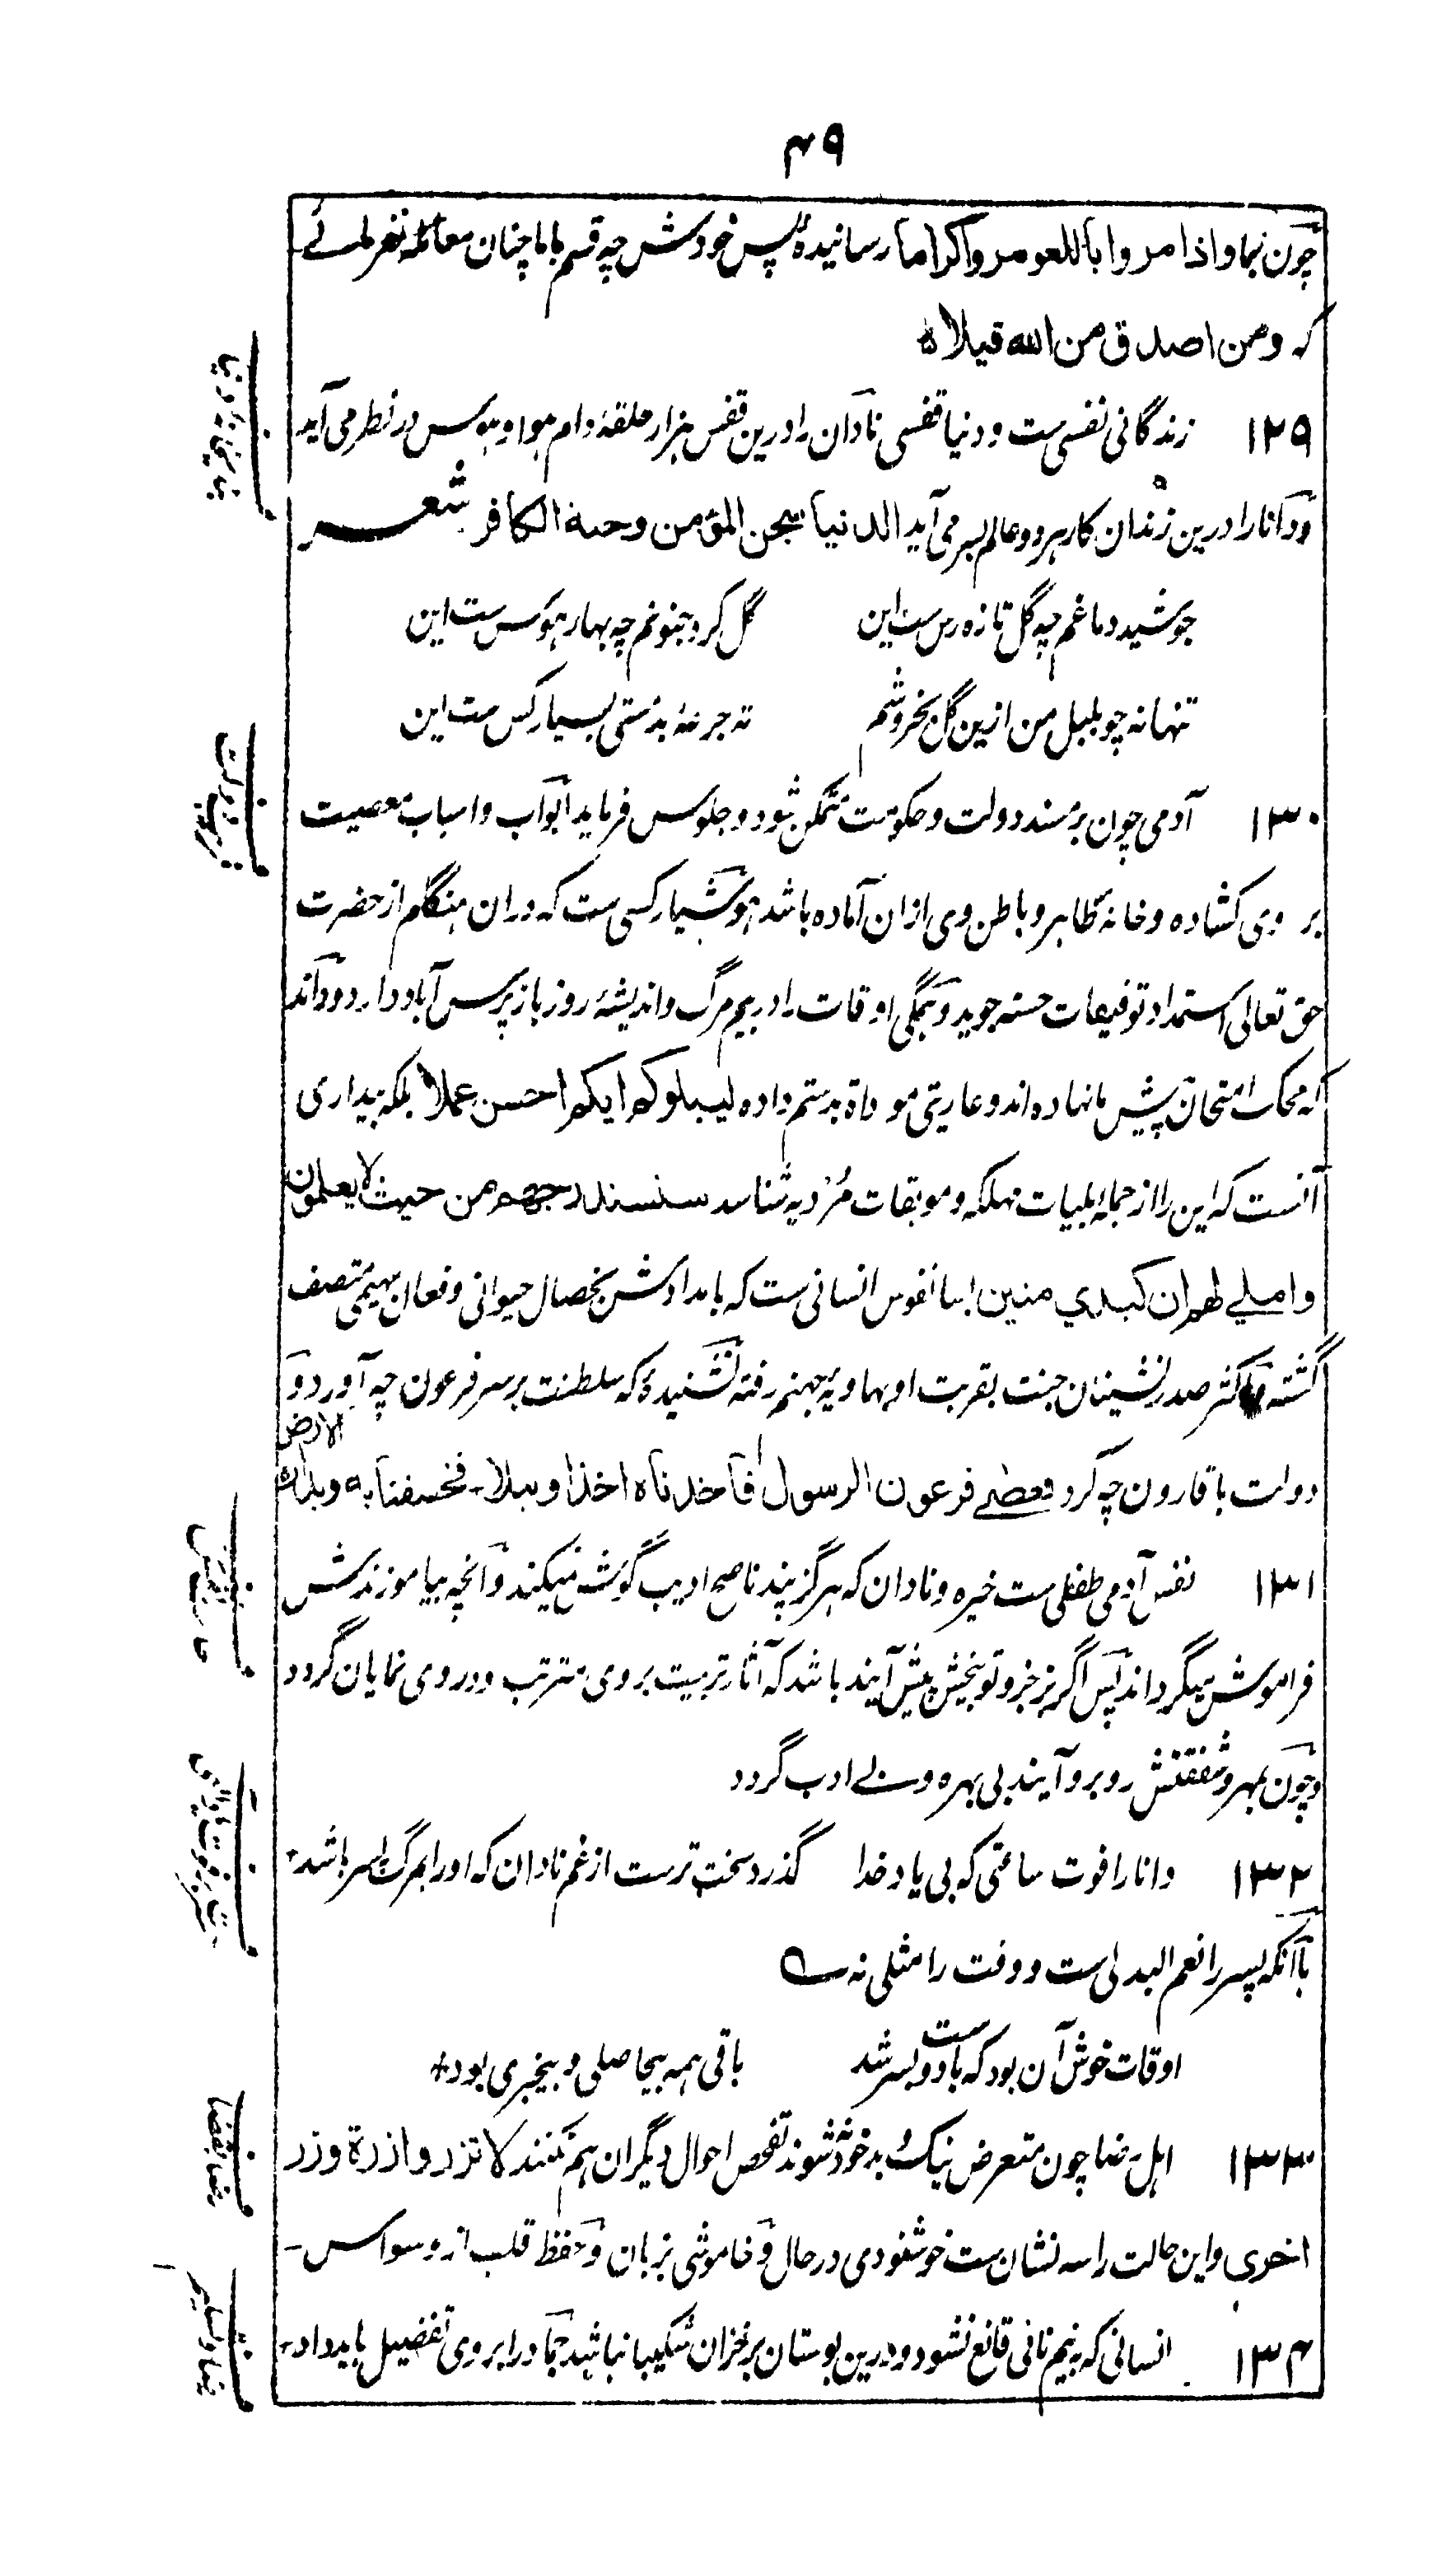 ۴۹
چون بما و اذا مروا باللغو مروا کراما رسانیدهٔ پس خودش چه قسم باما چنان معامله نفرمائے
که ومن اصدق من الله قیلاه
۱۲۹ زندگانی نفسی ست و دنیا قفسی نادان را درین قفس هزار حلقهٔ دام هوا و هوس در نظر می آید
و دانا را درین زندان کار هر دو عالم بسر می آید الدنیا سجن المؤمن وجنة الکافر شعر
جوشید دماغم چه گل تازه رس ست این گل کرد جنونم چه بهار هوس ست این
تنها نه چو بلبل من ازین گل بخروشم ته جرعهٔ بدمستی بسیار کس ست این
۱۳۰ آدمی چون بر مسند دولت و حکومت متمکن شود و جلوس فرماید ابواب و اسباب معصیت
بر وی کشاده و خانهٔ ظاهر و باطن وی ازان آماده باشد هوشیار کسی ست که دران هنگام از حضرت
حق تعالی استمداد توفیقات حسنه جوید و همگی اوقات را در بیم مرگ و اندیشهٔ روز بازپرس آباد دارد و داند
که محک امتحان پیش ما نهاده اند و عاریتی موداة بدستم داده لیبلوکم ایکم احسن عملا بلکه بیداری
آنست که این را از جمله بلیات مهلکه و موبقات مُردیه شناسد سنستدرجهم من حیث لا یعلمون
واملی لهم ان کیدی متین بسا نفوس انسانی ست که بامدادش بخصال حیوانی و فعان بهیمی متصف
گشته و اکثر صدرنشینان جنت بقربت او بهاویهٔ جهنم رفته نشنیدهٔ که سلطنت بر سر فرعون چه آورد و
دولت با قارون چه کرد فعصی فرعون الرسول فاخذناه اخذا وبیلا۔ فخسفنا به وبداره الارض
۱۳۱ نفس آدمی طفلی ست خیره و نادان که هرگز پند ناصح ادیب گوش نمیکند و آنچه بیاموزندش
فراموش میگرداند پس اگر بزجر و توبیخش پیش آیند باشد که آثار تربیت بر وی مترتب و در وی نمایان گردد
و چون بمهر و شفقتش روبرو آیند بی بهره و بے ادب گردد
۱۳۲ دانا را فوت ساعتی که بی یاد خدا گذرد سخت ترست از غم نادان که او را بمرگ پسر باشد
با آنکه پسر را نعم البدلی ست و وقت را مثلی نه
اوقات خوش آن بود که با دوست بسر شد باقی همه بیحاصلی و بیخبری بود
۱۳۳ اهل رضا چون متعرض نیک و بد خود نشوند تفحص احوال دیگران هم نکنند لا تزر وازرة وزر
اخری و این حالت را سه نشان ست خوشنودی در حال و خاموشی زبان و حفظ قلب از وسواس
۱۳۴ انسانی که به نیم نانی قانع نشود و درین بوستان بر خزان شکیبا نباشد جماد را بر وی تفضیل باید داد
رضا بقضا
رضا و تسلیم